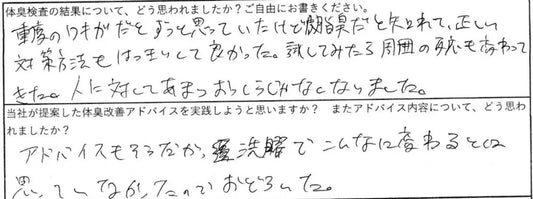 体臭検査の結果について、どう思われましたか？ご自由にお書きください。
重度のワキガだとずっと思っていたけど脂臭だと知れて、正しい
対策方法もはっきりして良かった。試してみたら周囲の反応も変わって
きた。人に対してあまり なくなりました。
当社が提案した体臭改善アドバイスを実践しようと思いますか？　またアドバイス内容について、どう思わ
れましたか？
アドバイスもそうだが、洗腸でこんなに変わるとは
思っていなかったのでおどろいた。